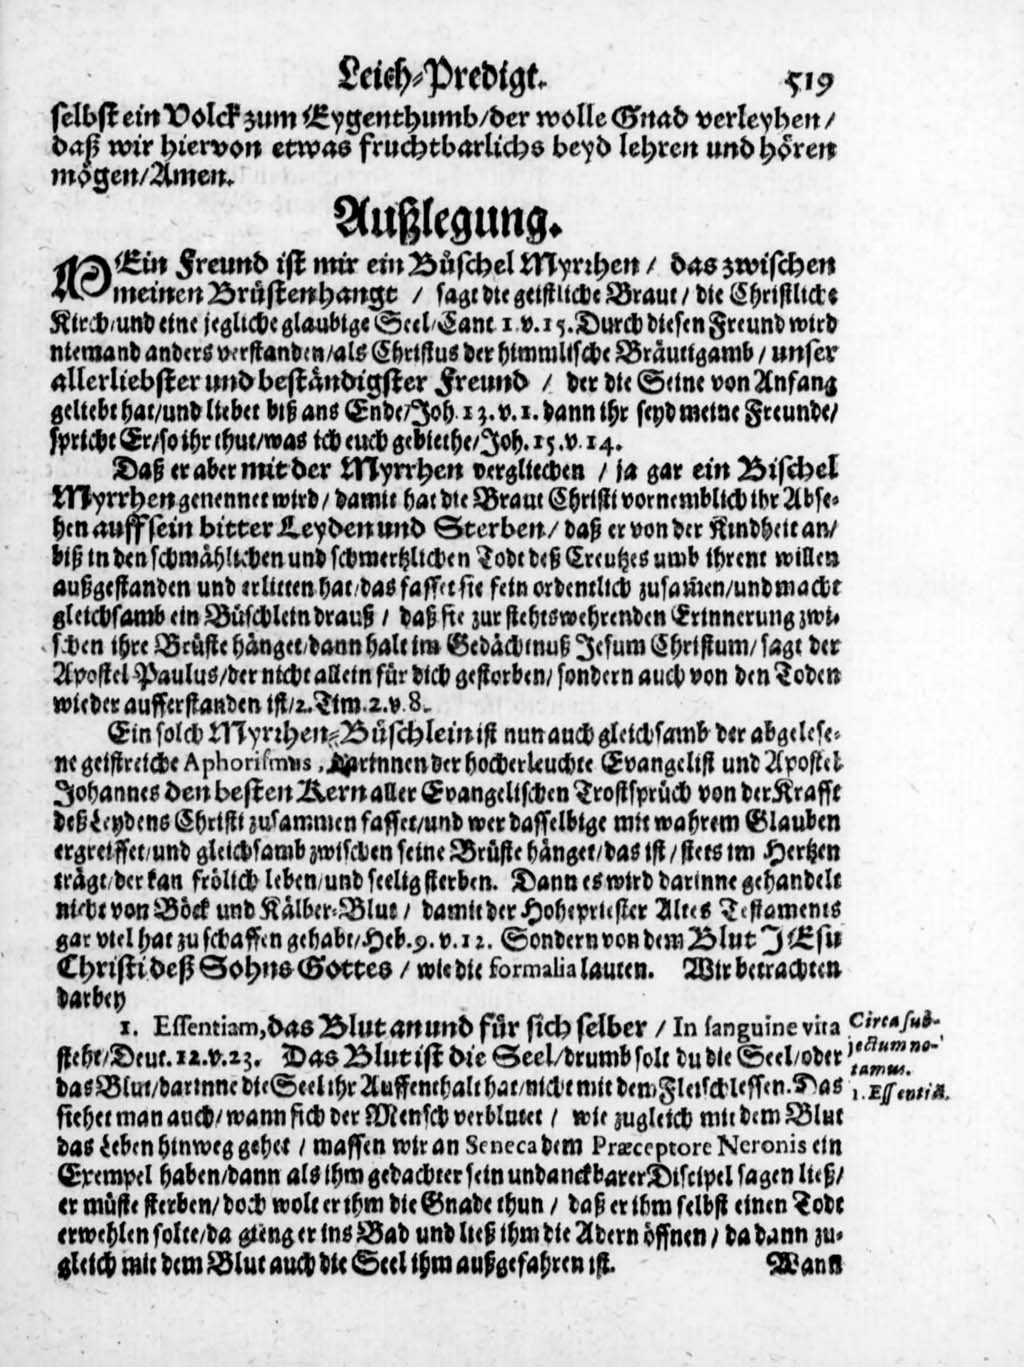 Leich-Predigt. 519
selbst ein Volck zum Eygenthumb/der wolle Gnad verleyhen/
daß wir hiervon etwas fruchtbarlichs beyd lehren und hören
mögen/Amen.
Außlegung.
MEin Freund ist mir ein Büschel Myrrhen / das zwischen
meinen Brüsten hangt / sagt die geistliche Braut / die Christliche
Kirch/und eine jegliche glaubige Seel/Cant 1.v.15. Durch diesen Freund wird
niemand anders verstanden/als Christus der himmlische Bräutigamb / unser
allerliebster und beständigster Freund / der die Seine von Anfang
geliebt hat/und liebet biß ans Ende/Joh. 13.v.1. dann ihr seyd meine Freunde/
spricht Er/so ihr thut/was ich euch gebiethe/Joh. 15.v.14.
Daß er aber mit der Myrrhen verglichen / ja gar ein Bischel
Myrrhen genennet wird/ damit hat die Braut Christi vornemblich ihr Abse-
hen auff sein bitter Leyden und Sterben/ daß er von der Kindheit an/
biß in den schmählichen und schmertzlichen Todt deß Creutzes umb ihrent willen
außgestanden und erlitten hat/das fasset sie fein ordentlich zusam̃en/und macht
gleichsamb ein Büschlein drauß / daß sie zur stehtswehrenden Erinnerung zwi-
schen ihre Brüste hänget/dann halt im Gedächtnuß Jesum Christum/ sagt der
Apostel Paulus/der nicht allein für dich gestorben/ sondern auch von den Toden
wieder aufferstanden ist/2.Tim.2.v.8.
Ein solch Myrrhen-Büschlein ist nun auch gleichsamb der abgelese-
ne geistreiche Aphorismus, darinnen der hocherleuchte Evangelist und Apostel
Johannes den besten Kern aller Evangelischen Trostsprüch von der Krafft
deß Leydens Christi zusammen fasset/und wer dasselbige mit wahrem Glauben
ergreiffet/und gleichsamb zwischen seine Brüste hänget/das ist/ stets im Hertzen
trägt/der kan frölich leben/und seelig sterben. Dann es wird darinne gehandelt
nicht von Böck und Kälber-Blut/ damit der Hohepriester Altes Testaments
gar viel hat zu schaffen gehabt/Heb.9.v.12. Sondern von dem Blut JEsu
Christi deß Sohns Gottes / wie die formalia lauten. Wir betrachten
darbey
1. Essentiam, das Blut an und für sich selber / In sanguine vita
steht/Deut.12.v.23. Das Blut ist die Seel/drumb solt du die Seel/oder
das Blut/darinne die Seel ihr Auffenthalt hat/nicht mit dem Fleisch essen. Das
siehet man auch/ wann sich der Mensch verblutet / wie zugleich mit dem Blut
das Leben hinweg gehet / massen wir an Seneca dem Præceptore Neronis ein
Exempel haben/dann als ihm gedachter sein undanckbarer Discipel sagen ließ/
er müste sterben/ doch wolt er ihm die Gnade thun / daß er ihm selbst einen Todt
erwehlen solte/da gieng er ins Bad und ließ ihm die Adern öffnen / da dann zu-
gleich mit dem Blut auch die Seel ihm außgefahren ist. Wann
Circa sub-
jectum no-
tamus.
1. Essentiā.